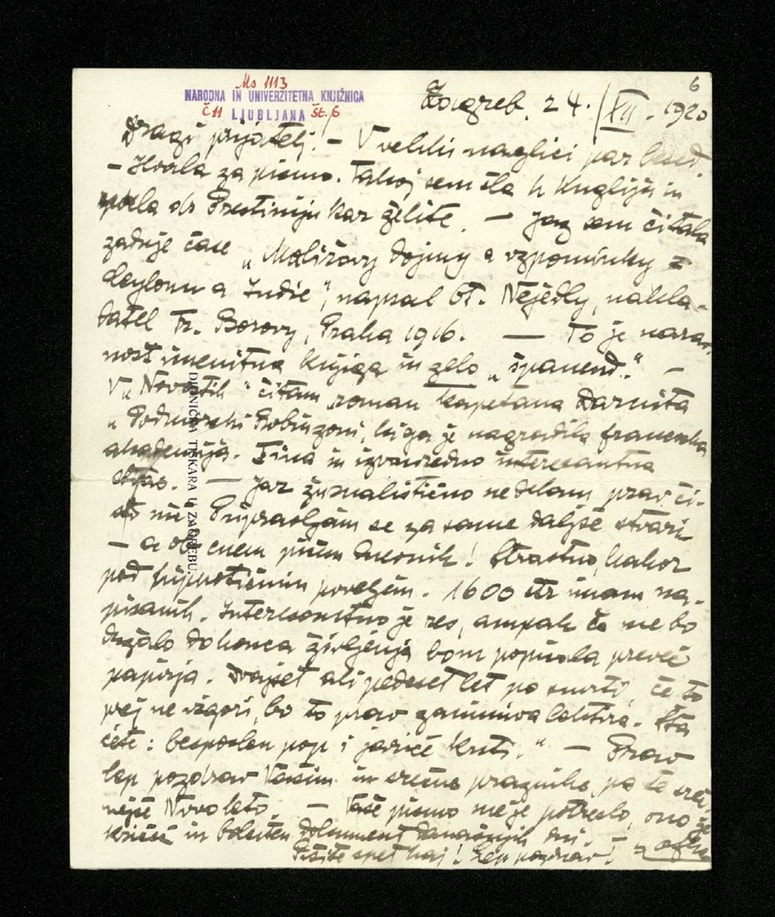 6
Ms 1113
NARODNA IN UNIVERZITETNA KNJIŽNICA
Č 11 LJUBLJANA Št. 6
Zagreb, 24./XII. 1920
Dragi prijatelj! – V veliki naglici par besed.
– Hvala za pismo. Takoj sem šla h Kugliju in
Prestiniju kar želite. – Jaz sem čitala
zadnje čase „Malířovy dojmy a vzpomínky z
Ceylonu a Indie“, napsal Ot. Nejedlý, nakla-
datel Fr. Borový, Praha 1916. — To je narav-
nost imenitna knjiga in zelo „španend.“ –
V „Novostih“ čitam roman kapetana
„ Robinzoni, ki ga je nagradila francuska
akademija. Fina in izvanredno interesantna
– Jaz žurnalistično ne delam prav či-
sto nič. Pripravljam se za same daljše stvari
– a ob enem pišem dnevnik! Strastno, kakor
pod hipnotičnim poveljem. 1600 str imam na-
pisanih. Interesantno je res, ampak če me bo
držalo do konca življenja bom popisala preveč
papirja. Dvajset ali pedeset let po smrti, če to
prej ne zgori, bo to prav zanimiva lektira. Šta
ćete: besposlen pop i jariće krsti.“ – Prav
lep pozdrav Vašim in srečne praznike pa še sreč-
nejše Novo leto. – Vaše pismo me je potreslo, ono je
in bolesten dokument današnjih dni.
Pišite spet kaj! Lep pozdrav!
DIONIČKA TISKARA U ZAGREBU.